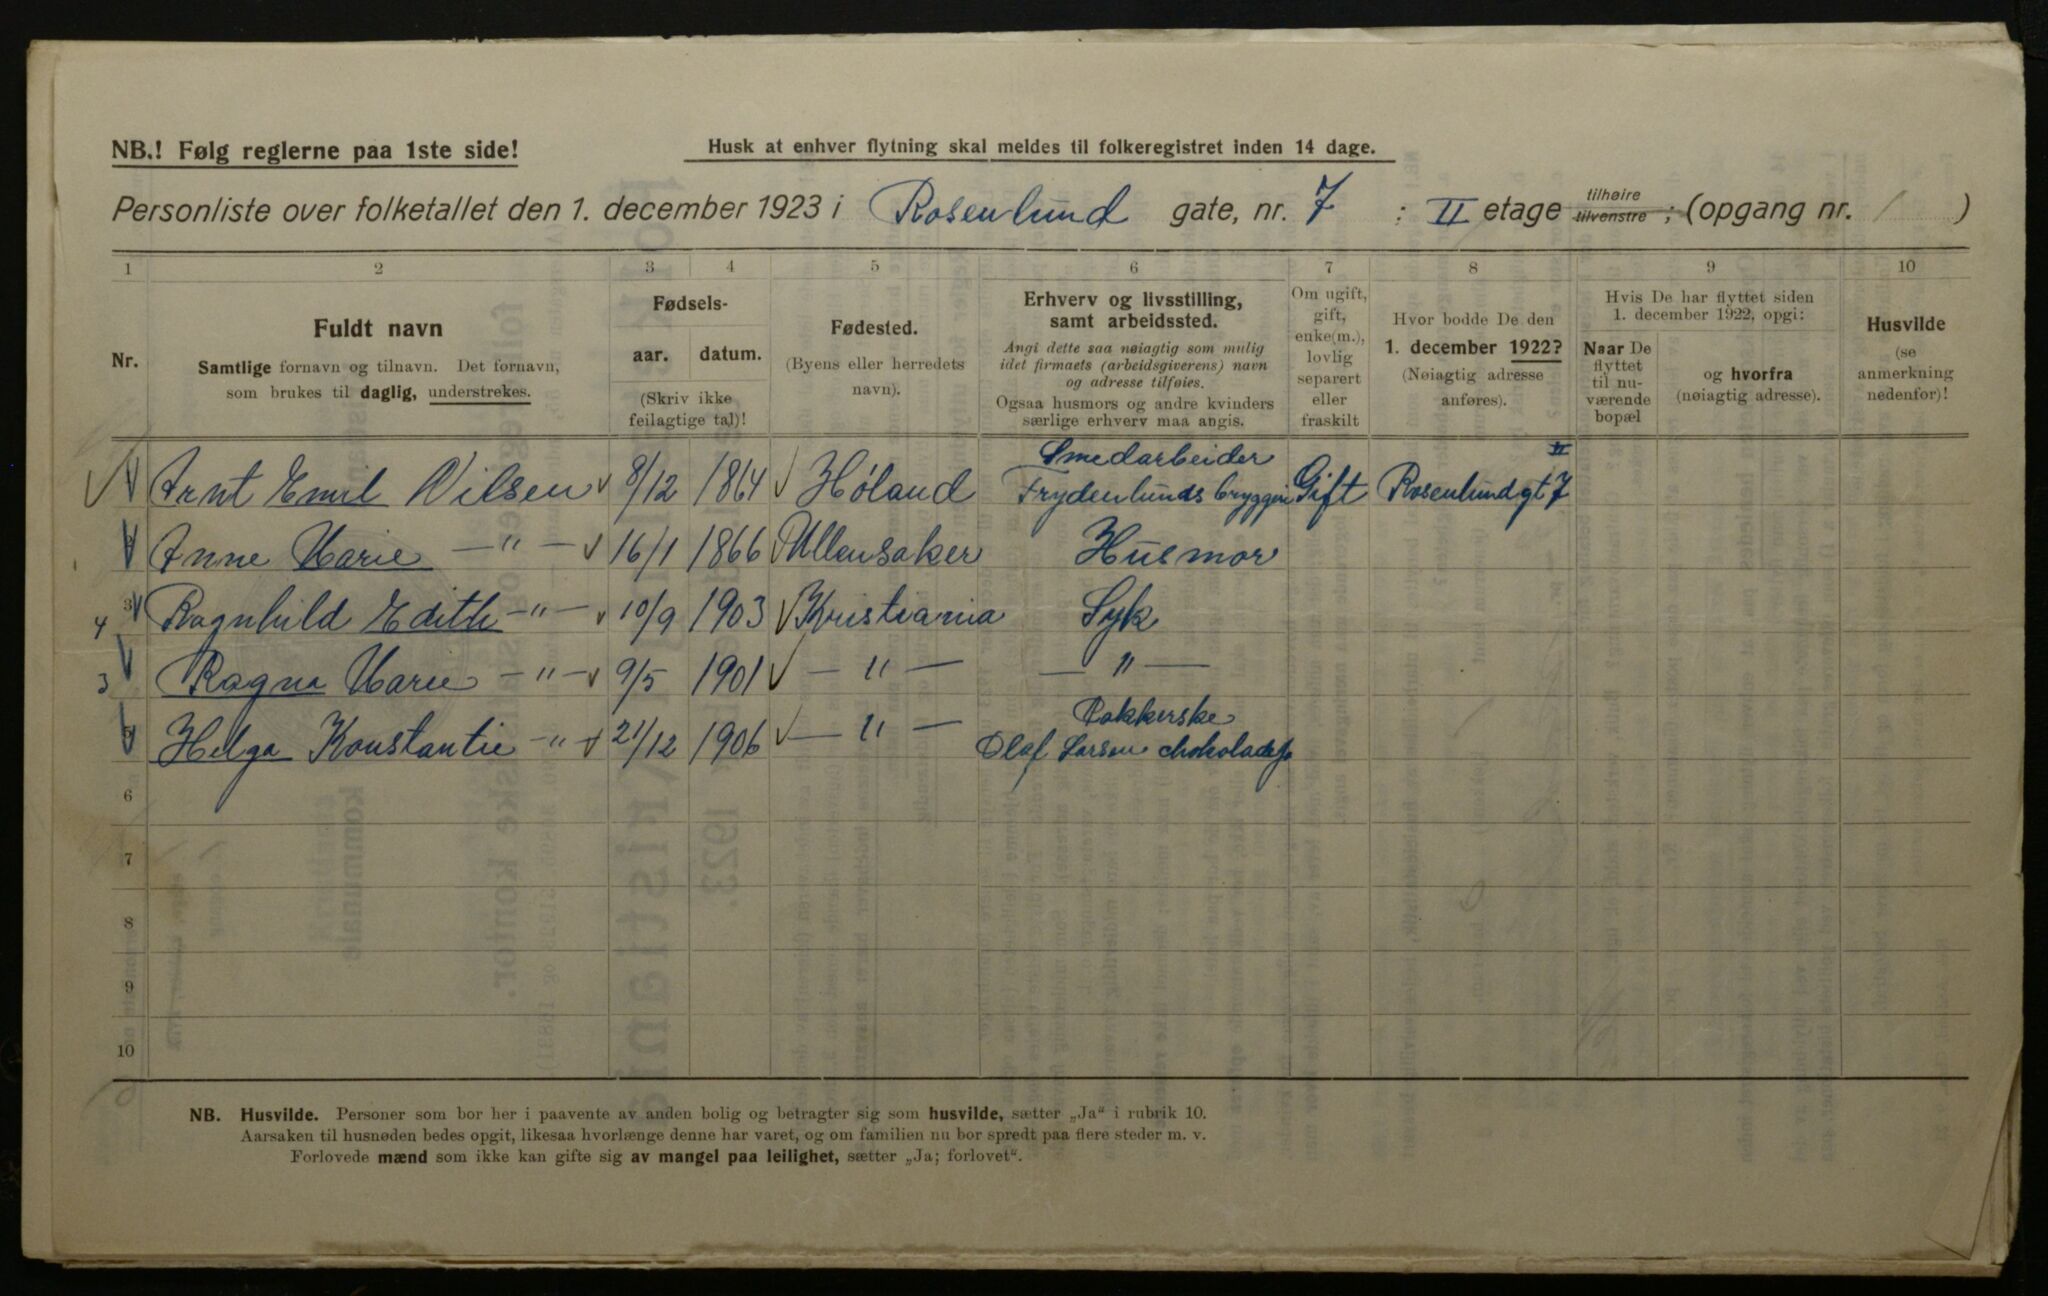 NB.! Følg reglerne paa 1ste side!
Husk at enhver flytning skal meldes til folkeregistret inden 14 dage.
Personliste over folketallet den 1. december 1923 i Rosenlund gate, nr. 7 ; II etage tilhøire tilvenstre ; (opgang nr. / )
1 2 3 4 5 6 7 8 9 10
Nr.
Fuldt navn
Samtlige fornavn og tilnavn. Det fornavn,
som brukes til daglig, understrekes.
Fødsels-
aar. datum.
(Skriv ikke
feilagtige tal)!
Fødested.
(Byens eller herredets
navn).
Erhverv og livsstilling,
samt arbeidssted.
Angi dette saa nøiagtig som mulig
idet firmaets (arbeidsgiverens) navn
og adresse tilføies.
Ogsaa husmors og andre kvinders
særlige erhverv maa angis.
Om ugift,
gift,
enke(m.),
lovlig
separert
eller
fraskilt
Hvor bodde De den
1. december 1922?
(Nøiagtig adresse
anføres).
Hvis De har flyttet siden
1. december 1922, opgi:
Naar De
flyttet
til nu-
værende
bopæl
og hvorfra
(nøiagtig adresse).
Husvilde
(se
anmerkning
nedenfor)!
Smedarbeider II
Arnt Emil Nilsen 8/12 1864 Høland Frydenlunds bryggeri Gift Rosenlundgt 7
Anne Marie —"— 16/1 1866 Ullensaker Husmor
4 3 Ragnhild Edith —"— 10/9 1903 Kristiania Syk
3 Ragna Marie —"— 9/5 1901 —"— —"—
Pakkerske
5 Helga Konstantie —"— 21/12 1906 —"— Olaf Larsen chokoladef
6
7
8
9
10
NB. Husvilde. Personer som bor her i paavente av anden bolig og betragter sig som husvilde, sætter „Ja" i rubrik 10.
Aarsaken til husnøden bedes opgit, likesaa hvorlænge denne har varet, og om familien nu bor spredt paa flere steder m. v.
Forlovede mænd som ikke kan gifte sig av mangel paa leilighet, sætter „Ja; forlovet".